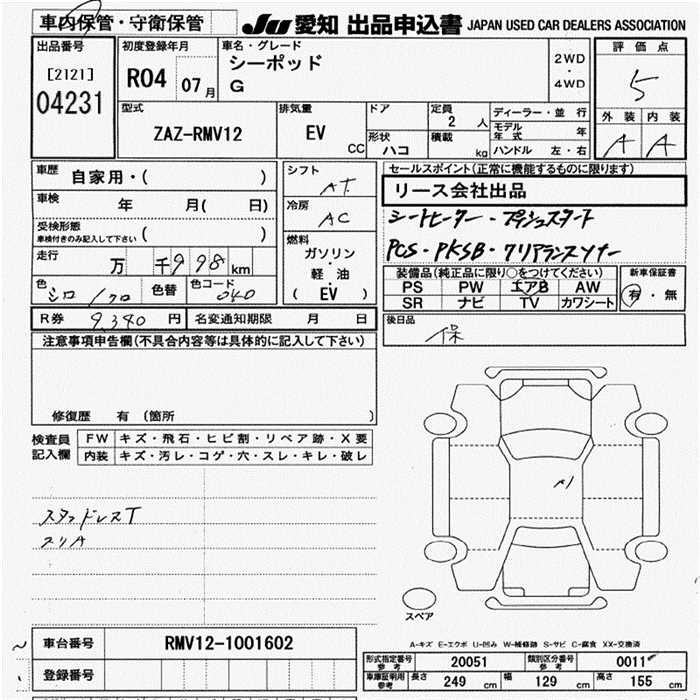 車内保管・守衛保管
JU 愛知 出品申込書 JAPAN USED CAR DEALERS ASSOCIATION
出品番号
[2121]
04231
初度登録年月
R04 07月
車名・グレード
シーポッド
G
2WD
・
4WD
評価点
5
外装 内装
A A
型式
ZAZ-RMV12
排気量
EV
CC
ドア
形状
ハコ
定員
2 人
積載
kg
ディーラー・並行
モデル年式 年
ハンドル 左・右
車歴
自家用・( )
車検 年 月( 日)
受検形態
車検付きのみ記入して下さい ( )
走行 万 千998km
色 シロ/クロ 色替 色コード 040
シフト
AT
冷房
AC
燃料
ガソリン
・
軽・油
( EV )
セールスポイント(正常に機能するものに限ります)
リース会社出品
シートヒーター・プッシュスタート
PCS・PKSB・クリアランスソナー
装備品(純正品に限り○をつけてください)
PS PW エアB AW
SR ナビ TV カワシート
新車保証書
有・無
R券 9,340円 名変通知期限 月 日
後日品
保
注意事項申告欄(不具合内容等は具体的に記入して下さい)
修復歴 有 (箇所 )
検査員
記入欄
FW キズ・飛石・ヒビ割・リペア跡・X要
内装 キズ・汚レ・コゲ・穴・スレ・キレ・破レ
スタッドレスT
スリA
A1
スペア
A-キズ E-エクボ U-凹み W-補修跡 S-サビ C-腐食 XX-交換済
車台番号 RMV12-1001602
登録番号
形式指定番号
参考
20051
類別区分番号
参考
0011
車庫証明用
参考
長さ 249 cm 幅 129 cm 高さ 155 cm